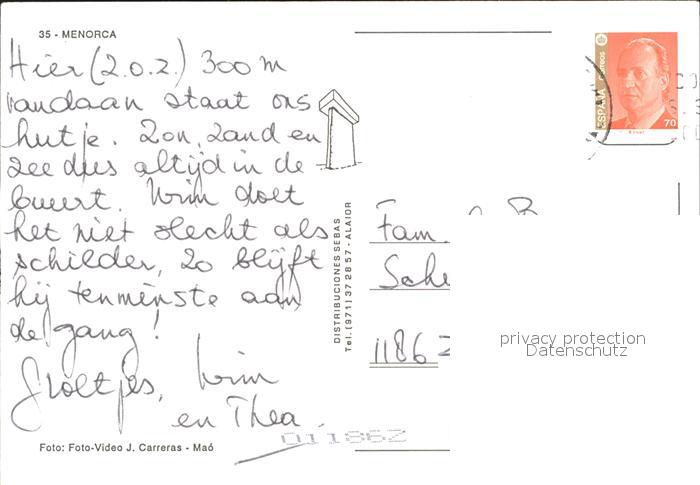 35 - MENORCA
Hier (z.o.z.) 300 m
vandaan staat ons
hutje. Zon, zand en
zee dus altijd in de
buurt. Wim doet
het niet slecht als
schilder, zo blijft
hij tenminste aan
de gang!
Groetjes, Wim
en Thea.
Foto: Foto-Video J. Carreras - Maó
DISTRIBUCIONES SEBAS
Tel. (971) 37 28 57 - ALAIOR
ESPAÑA
correos
70
Fam.
1186Z
011862
privacy protection
Datenschutz